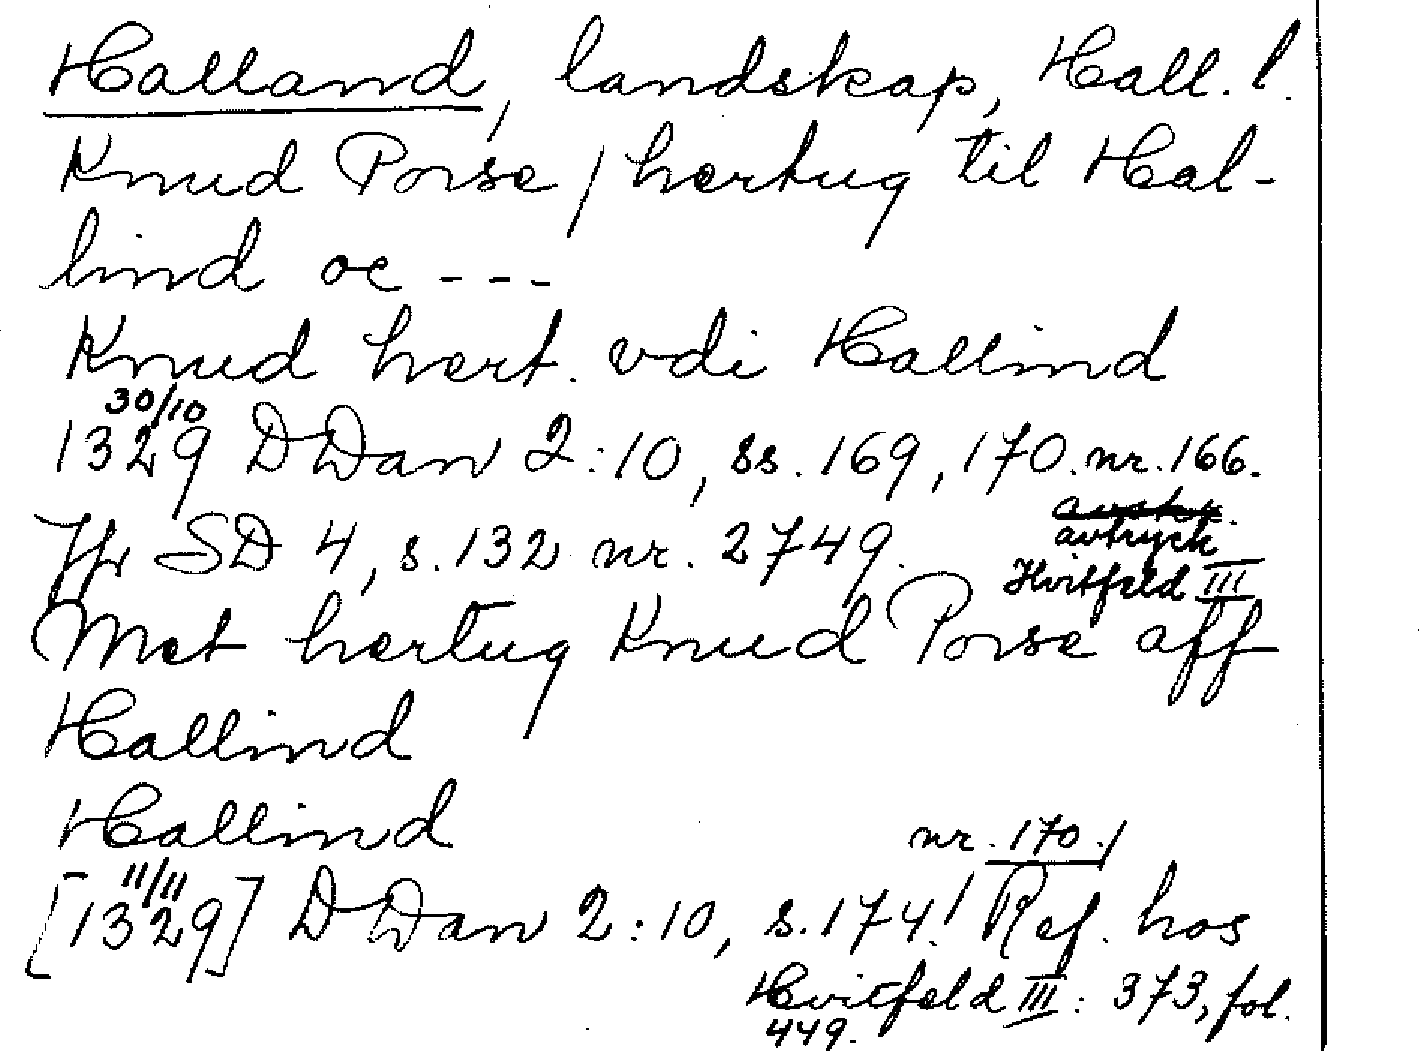 Halland, landskap, Hall. l.
Knud Porse / hertug til Hal-
lind oc ---
Knud hert. vdi Hallind
30/10
1329 DDan 2:10, ss. 169, 170. nr. 166.
Jfr SD 4, s. 132 nr. 2749.
avtryck
Hvitfeld III
Met hertug Knud Porse aff
Hallind
Hallind
nr. 170./
11/11
[1329] DDan 2:10, s. 174! Ref. hos
Hvitfeld III: 373, fol.
449.